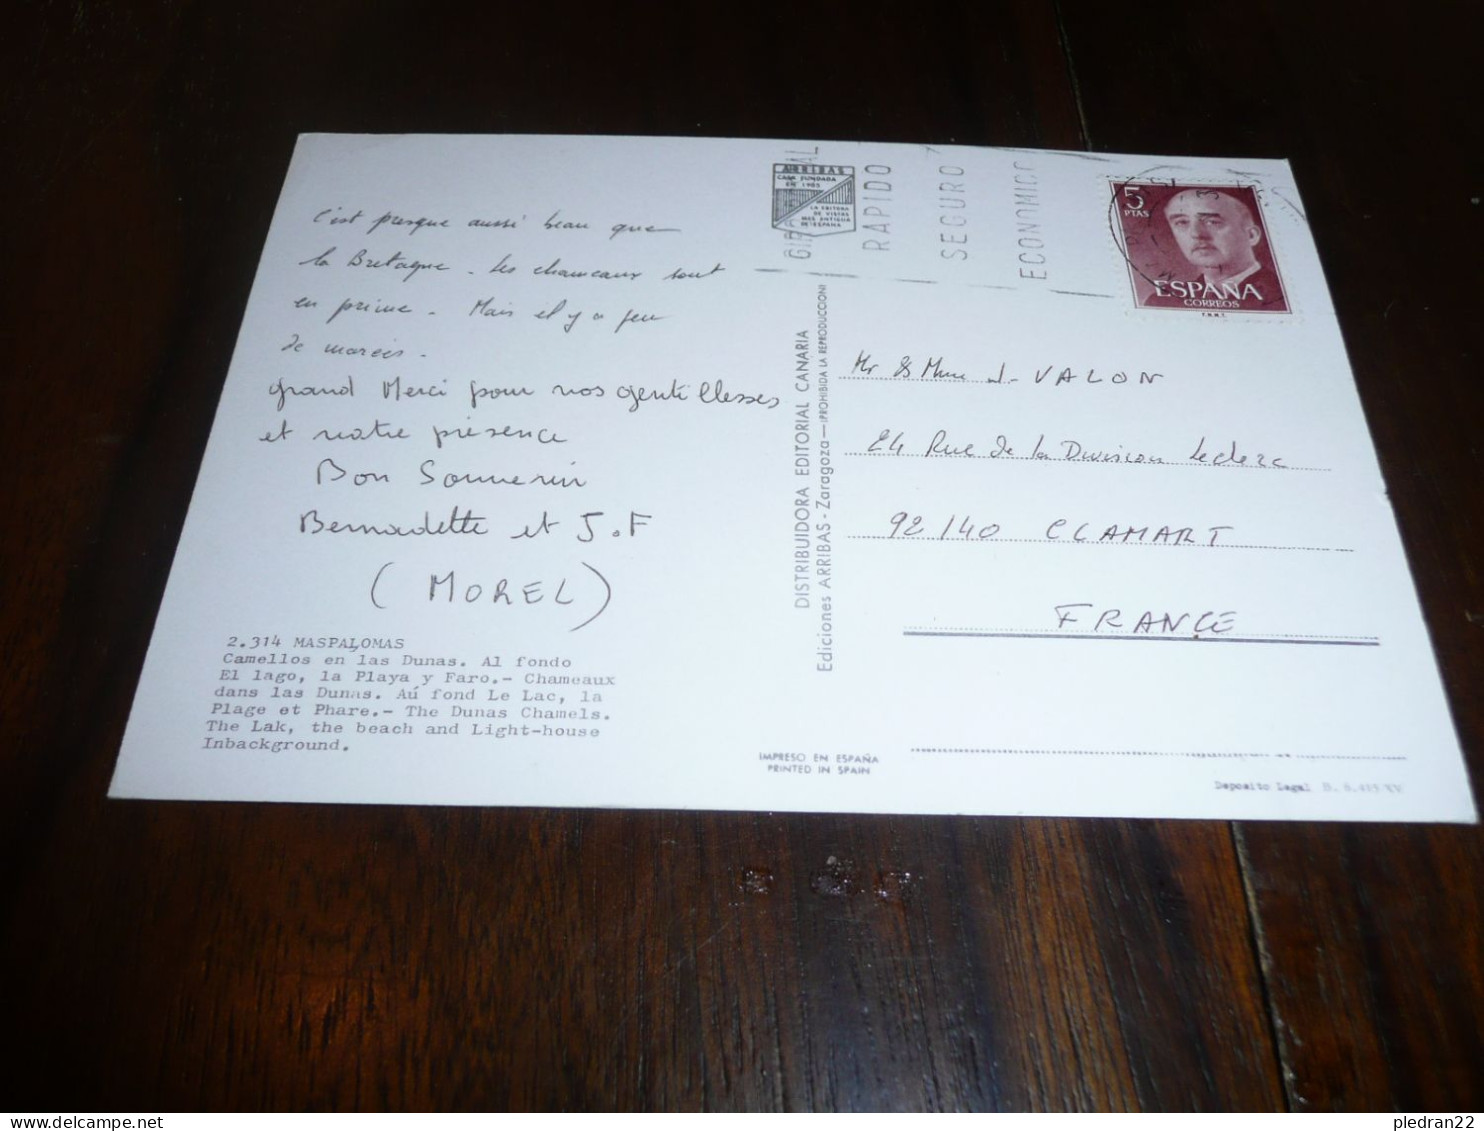 c'est presque aussi beau que
la Bretagne. Les chameaux sont
en prime. Mais il y a peu
de marées.
grand Merci pour vos gentillesses
et votre présence
Bon Souvenir
Bernadette et J.F
(MOREL)
2.314 MASPALOMAS
Camellos en las Dunas. Al fondo
El lago, la Playa y Faro.- Chameaux
dans las Dunas. Aú fond Le Lac, la
Plage et Phare.- The Dunas Chamels.
The Lak, the beach and Light-house
Inbackground.
ARRIBAS
CASA FUNDADA
EN 1905
LA EDITORA
DE VISTAS
MAS ANTIGUA
DE ESPAÑA
RAPIDO
SEGURO
ECONOMICO
5
PTAS
ESPAÑA
CORREOS
F.N.M.T.
DISTRIBUIDORA EDITORIAL CANARIA
Ediciones ARRIBAS - Zaragoza - ¡PROHIBIDA LA REPRODUCCION!
Mr & Mme J. VALON
24 Rue de la Division Leclerc
92140 CLAMART
FRANCE
IMPRESO EN ESPAÑA
PRINTED IN SPAIN
Deposito Legal
pledran22